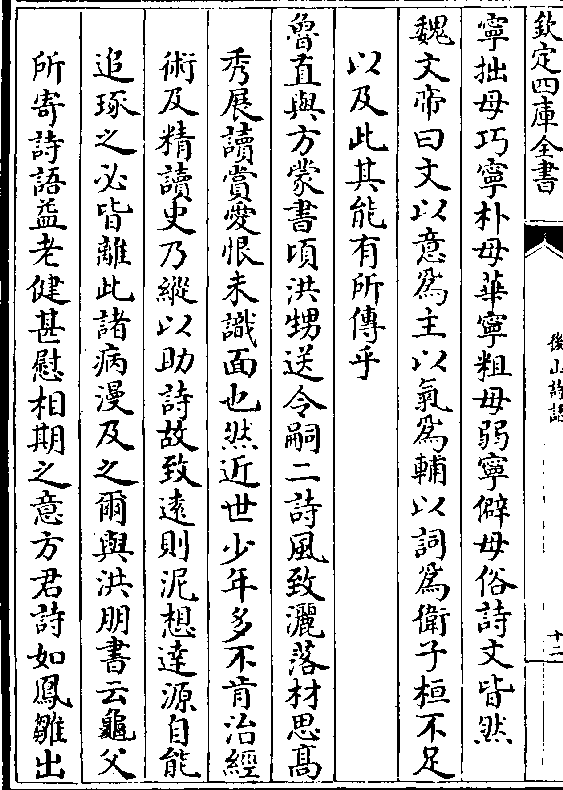 欽定四庫全書
後山詩話
十二
寧拙毋巧寧朴毋華寧粗毋弱寧僻毋俗詩文皆然
魏文帝曰文以意為主以氣為輔以詞為衛子桓不足
以及此其能有所傳乎
魯直與方蒙書頃洪甥送令嗣二詩風致灑落材思髙
秀展讀賞愛恨未識面也然近世少年多不肯治經
術及精讀史乃縱以助詩故致逺則泥想達源自能
追琢之必皆離此諸病漫及之爾與洪朋書云龜父
所寄詩語益老健甚慰相期之意方君詩如鳳雛出